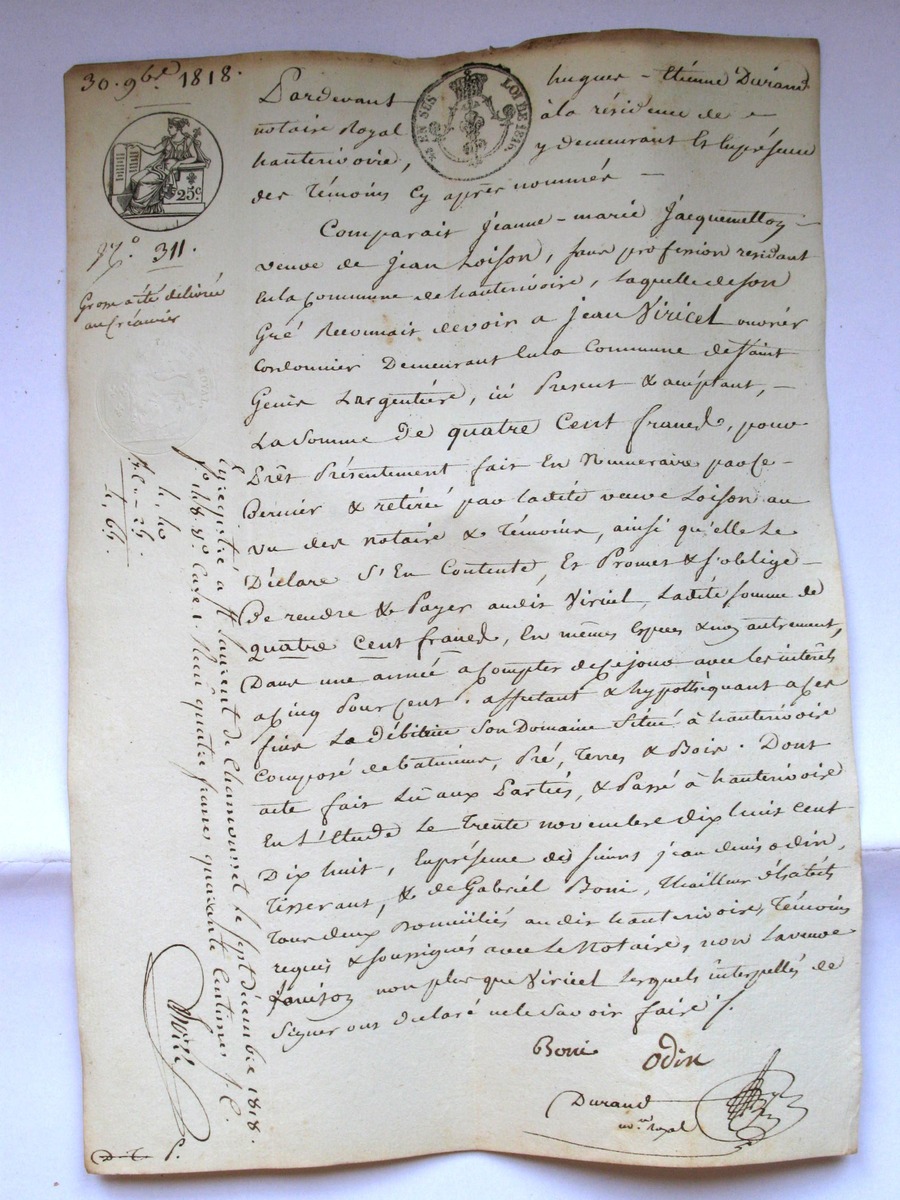 30. 9bre 1818.
25c
LOI DE 1816.
N.º 311.
Grosse a été délivrée
au Créancier
Pardevant hugues-Etienne Durand
notaire Royal à la résidence de
hauterivoire, y demeurant Et En présence
des Témoins Cy après nommés
Comparait Jeanne-marie Jacquemetton
veuve de Jean Loison, sans profession residant
En la Commune de hauterivoire, laquelle de son
Gré Reconnait devoir a Jean Viricel ouvrier
Cordonnier Demeurant En la Commune de Saint
Genis Largentière, ici Present & acceptant,
La Somme De quatre Cent francs, pour
Prêt Présentement fait En Numeraire par ce
Dernier & retirée par ladite veuve Loison au
vu des notaire & Témoins, ainsi qu'elle Le
Déclare S'En Contente, Et Promet & s'oblige
De rendre & Payer audit Viricel, Ladite somme de
quatre Cent francs, En mêmes Especes & non autrement,
Dans une année a Compter de ce jour avec les intérêts
a Cinq Pour Cent. affectant & hypothéquant a ces
fins La Débitrice Son Domaine Situé à hauterivoire
Composé de batimens, Pré, Terres & Bois. Dont
acte fait Lû aux Parties, & Passé à hauterivoire
En L'Etude Le Trente novembre dix huit cent
Dix huit, En présence des sieurs jean denis odin,
Tisserant, & de Gabriel Boni, Thailleur d'habits
Tous deux Domiciliés audit hauterivoire, Témoins
requis & soussignés avec Le Notaire, non La veuve
Loison non plus que Viricel Lesquels interpellés de
Signer ont déclaré ne le Savoir faire /.
Boni odin
Durand
no.re royal
Enregistré à St Laurent de Chamousset le sept décembre 1818.
fo 148 Vo Case 1. Reçu quatre francs quarante Centimes
4. 40